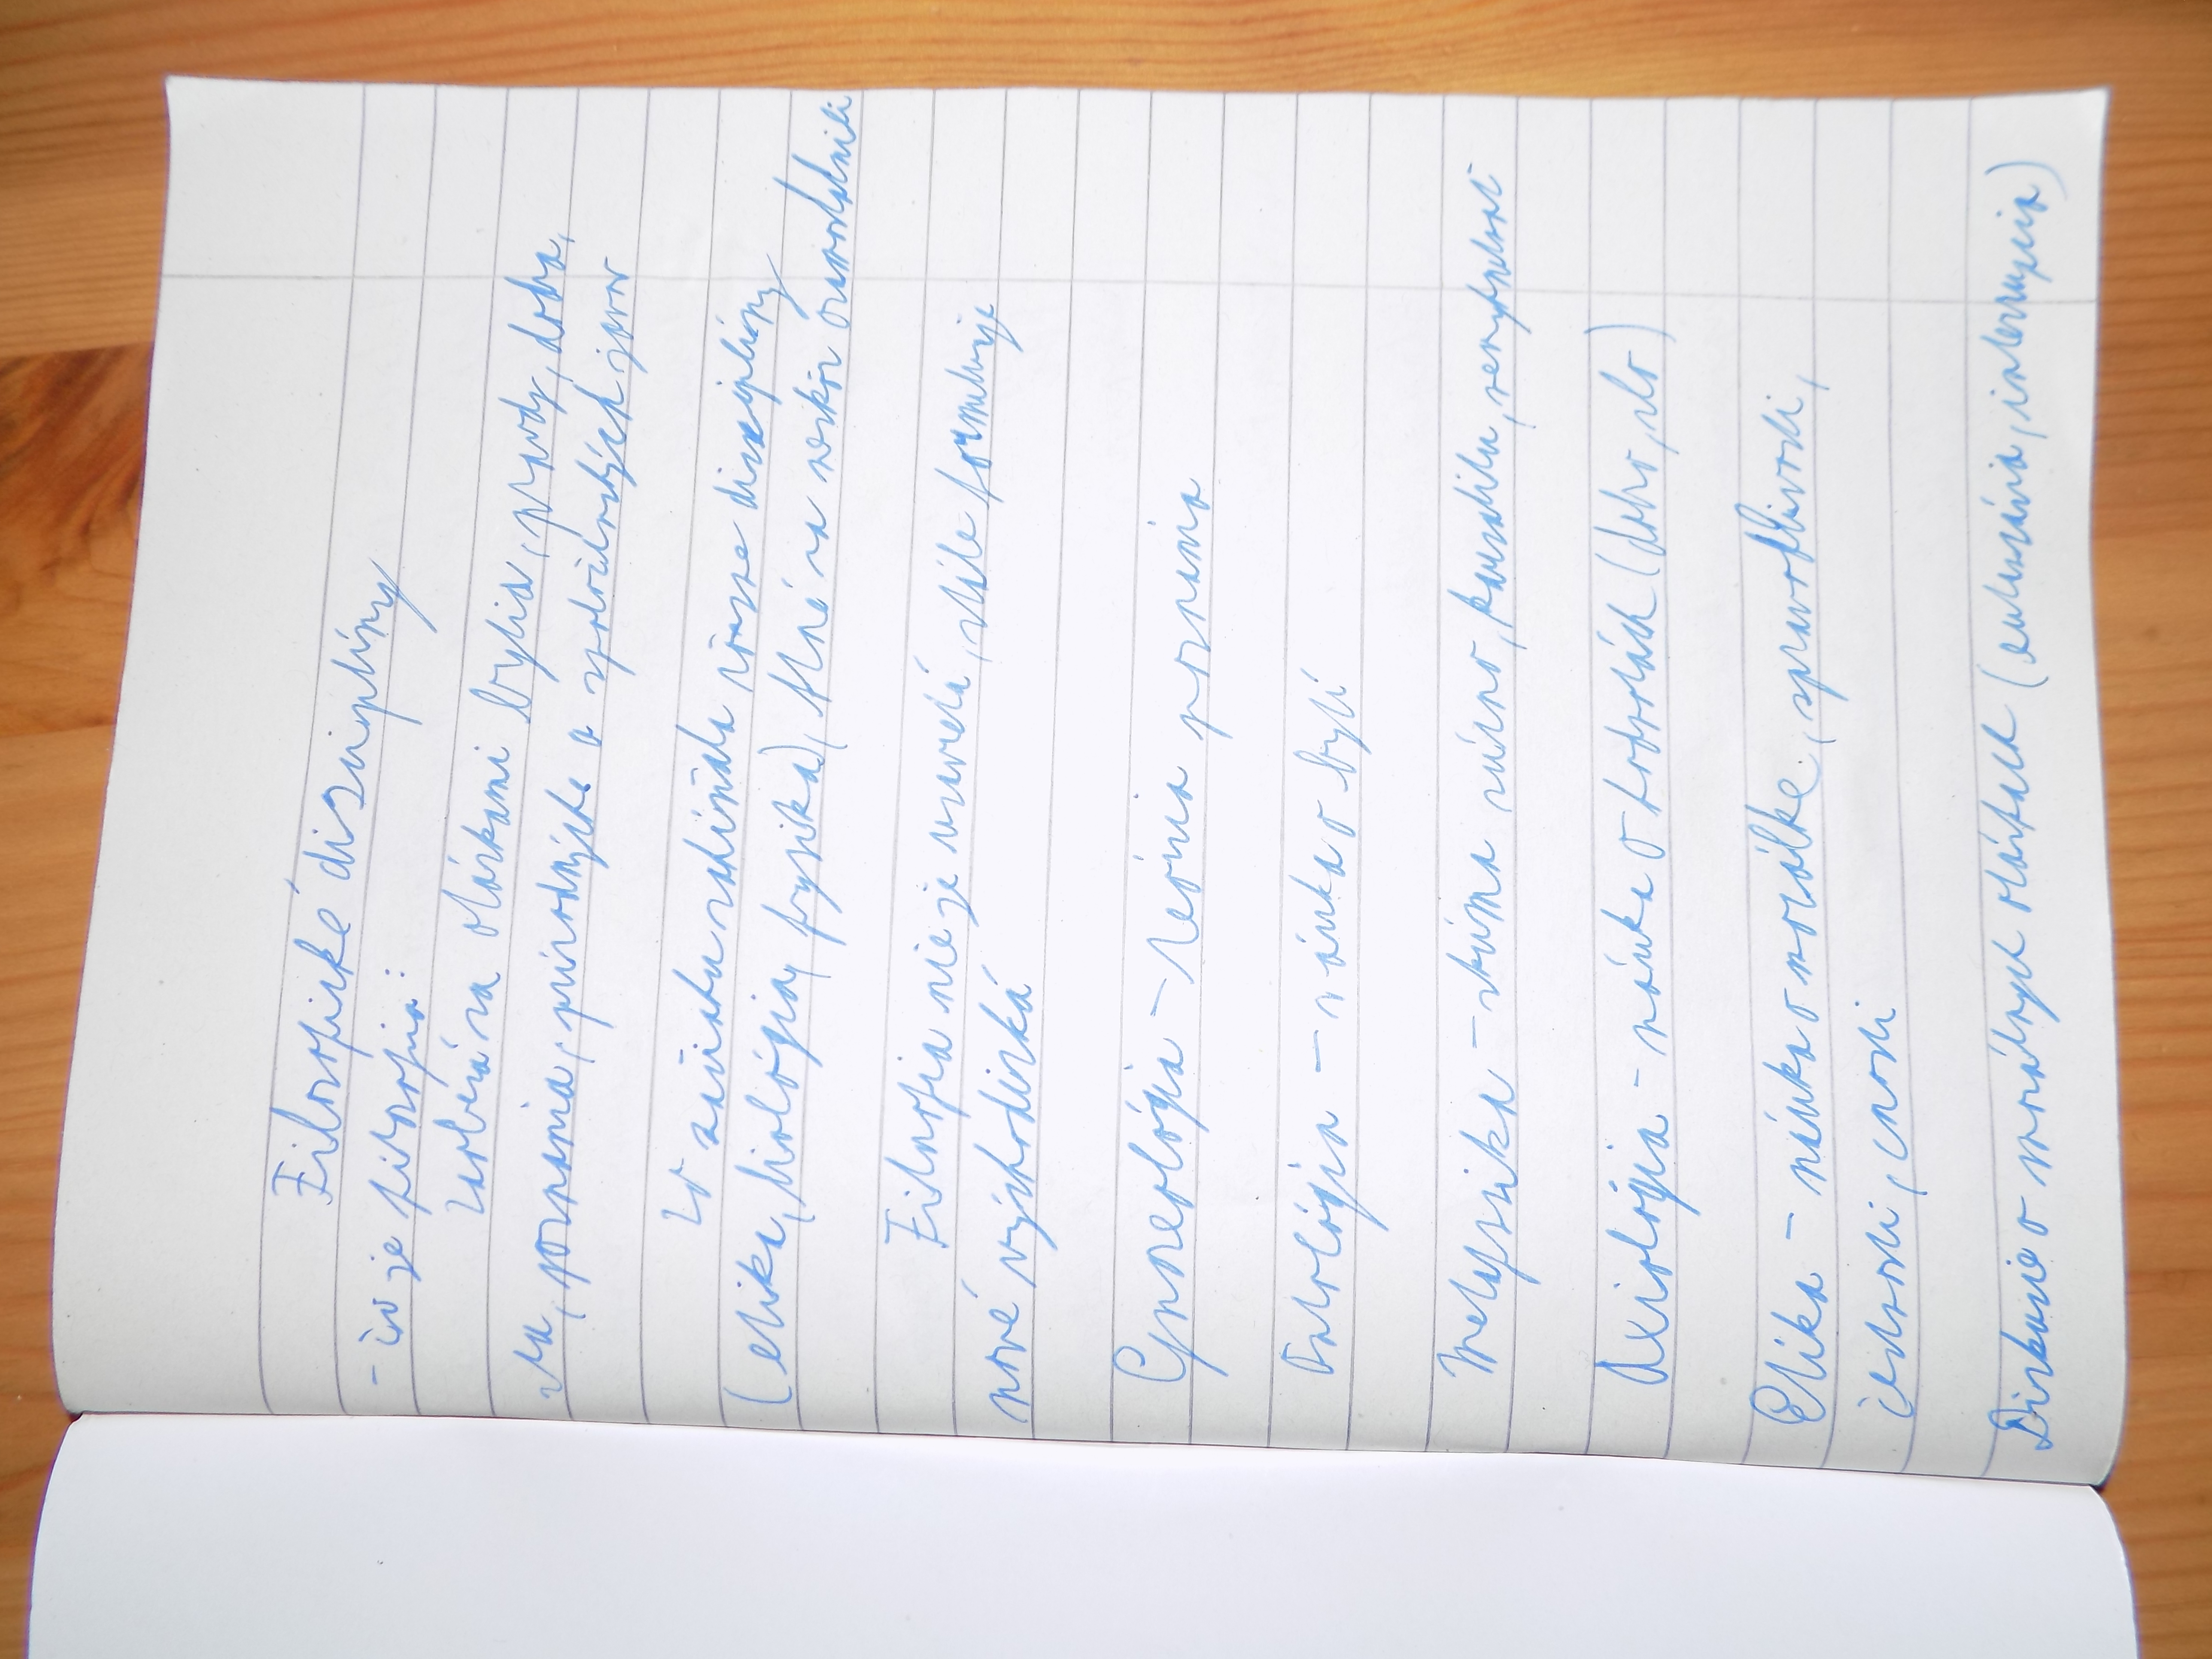 Filozofické disciplíny
- čo je filozofia:
Zaoberá sa otázkami bytia, pravdy, dobra,
sta, poznania, prírodných a spoločenských javov
Zo začiatku zahŕňala rôzne disciplíny
(etika, biológia, fyzika), ktoré sa neskôr osamostatnili
Filozofia nie je uzavretá, stále formuluje
nové východiská
Gnozeológia - teória poznania
Ontológia - náuka o bytí
Metafyzika - skúma vizno, kauzalitu, nevyhnutnosť
Axiológia - náuka o hodnotách (dobro, zlo)
Etika - náuka o morálke, spravodlivosti,
čestnosti, cnosti
Diskusie o morálnych otázkach (eutanázia, interrupcia)